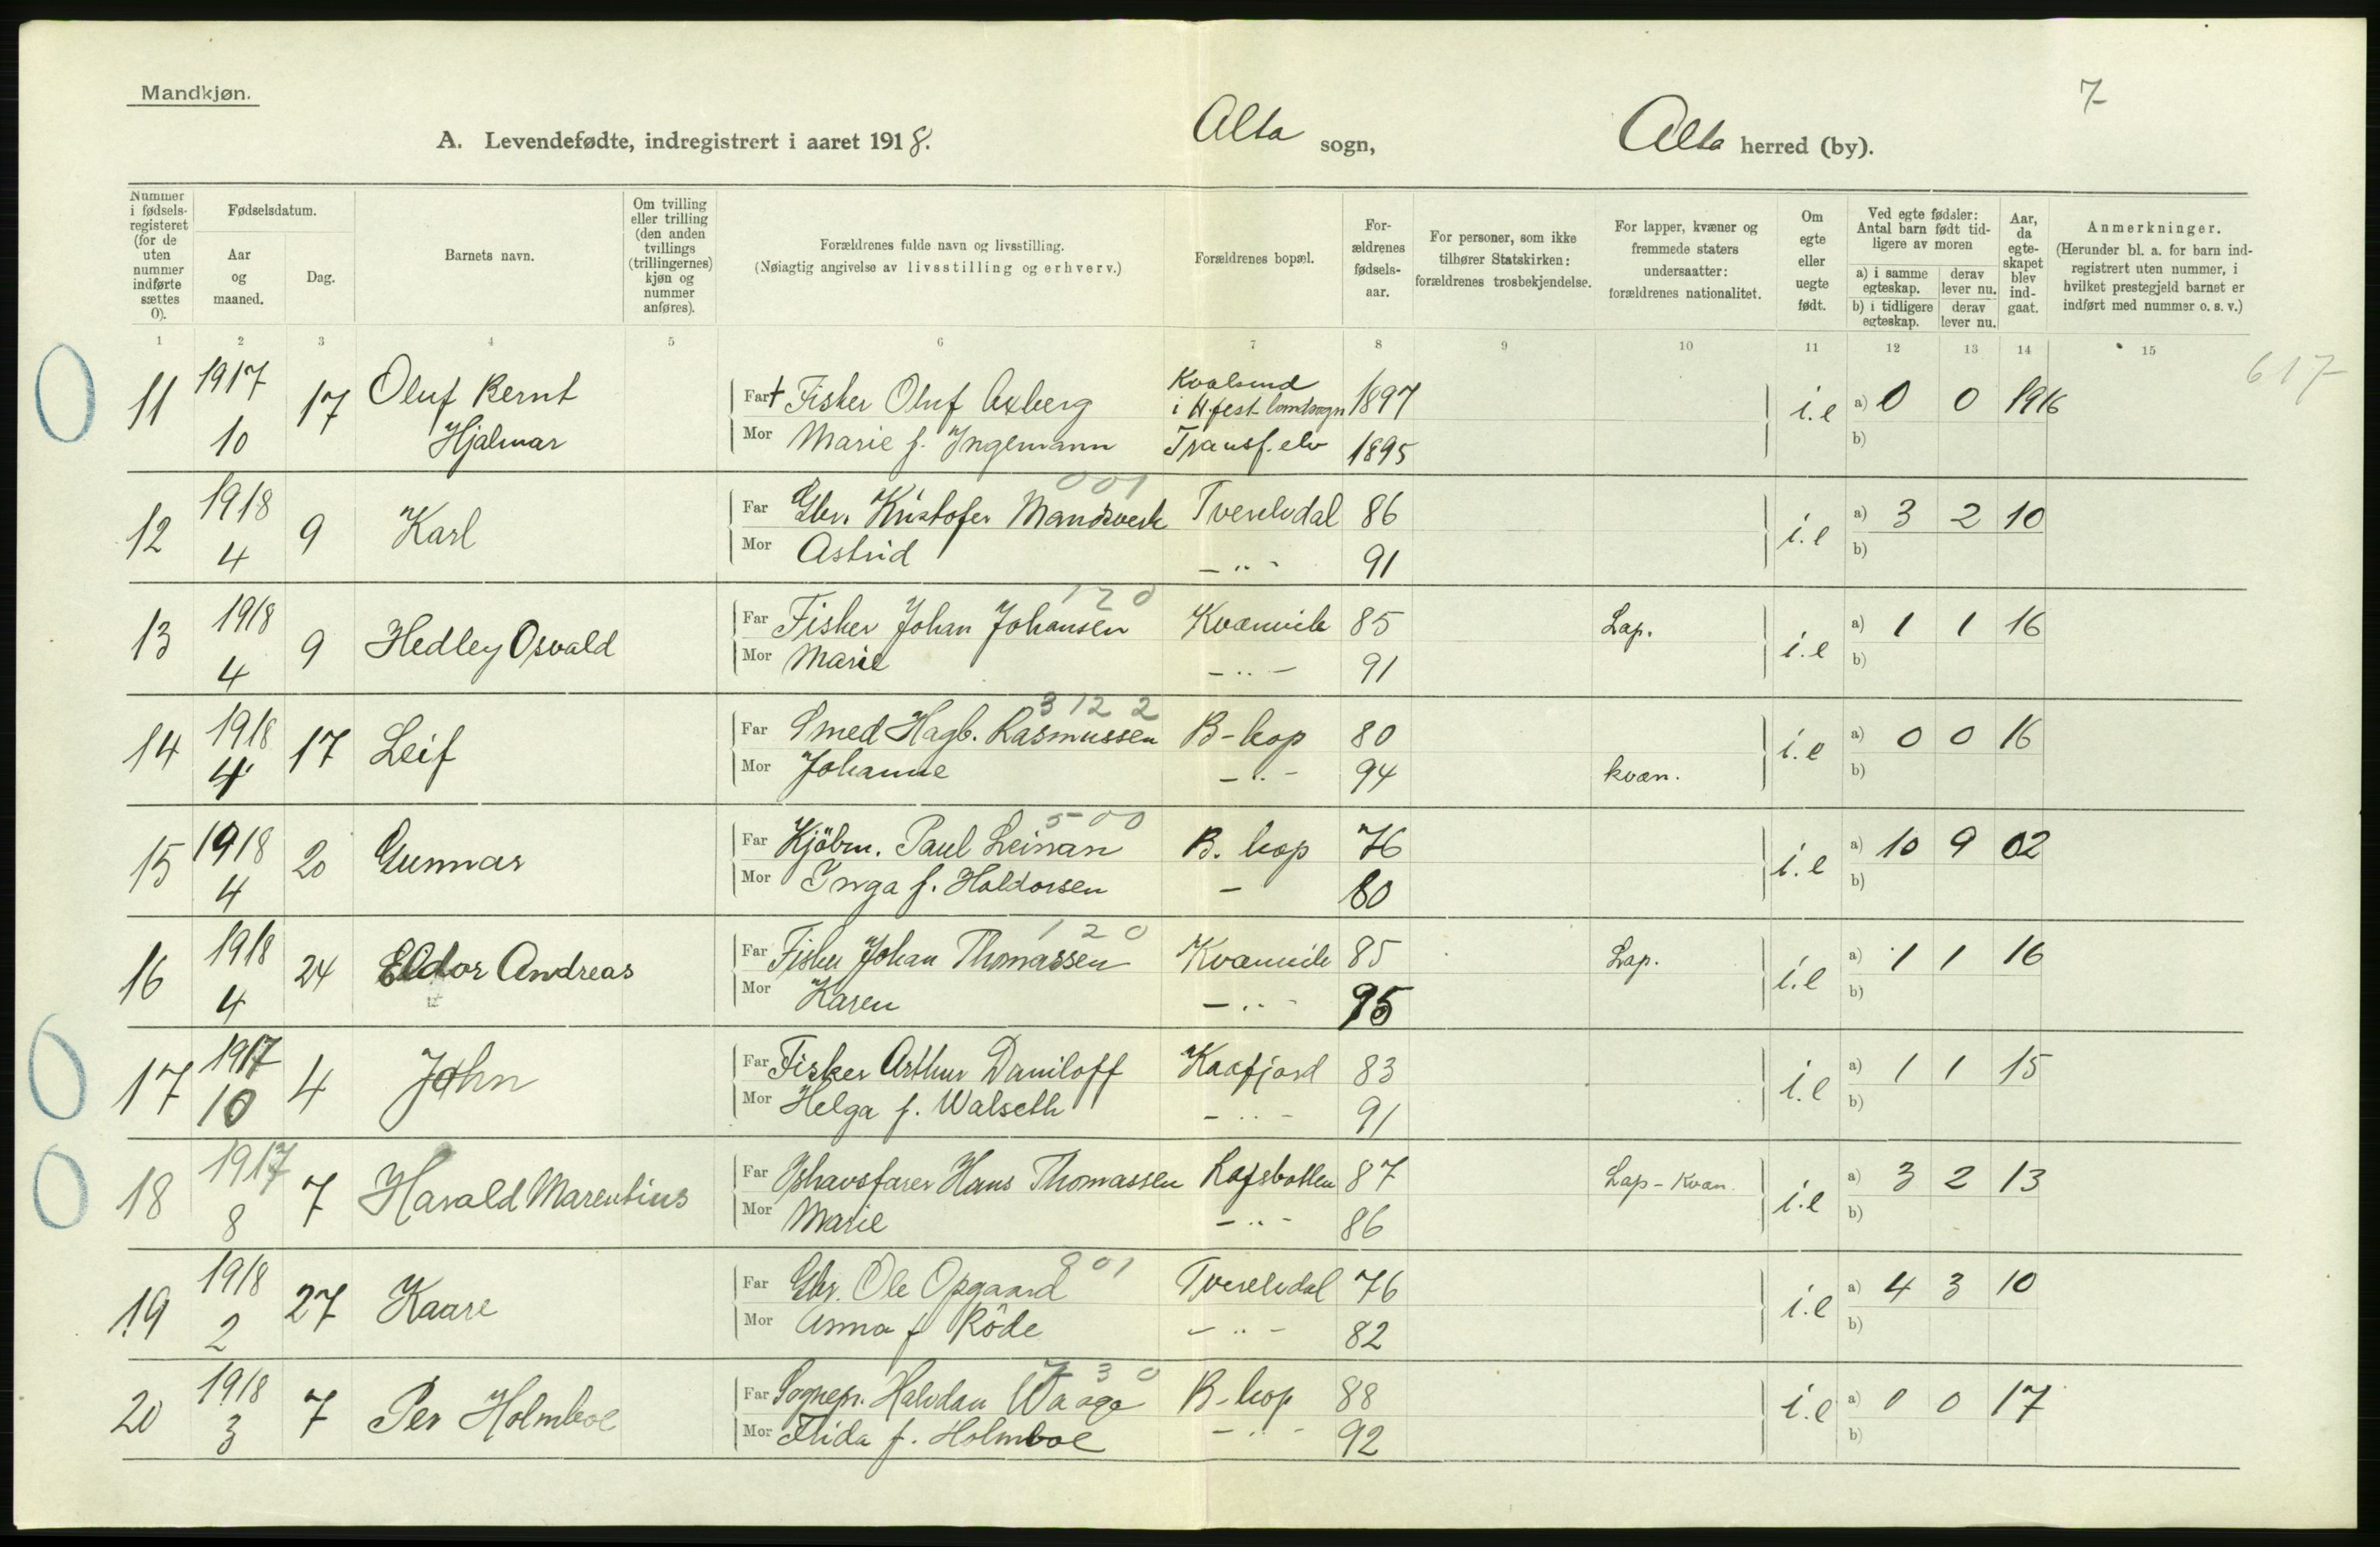 Mandkjøn.
7
A. Levendefødte, indregistrert i aaret 1918. Alta sogn, Alta herred (by).
Nummer i fødsels-registeret (for de uten nummer indførte sættes 0).
Fødselsdatum.
Aar og maaned.
Dag.
Barnets navn.
Om tvilling eller trilling (den anden tvillings (trillingernes) kjøn og nummer anføres).
Forældrenes fulde navn og livsstilling.
(Nøiagtig angivelse av livsstilling og erhverv.)
Forældrenes bopæl.
For-ældrenes fødsels-aar.
For personer, som ikke tilhører Statskirken: forældrenes trosbekjendelse.
For lapper, kvæner og fremmede staters undersaatter: forældrenes nationalitet.
Om egte eller uegte født.
Ved egte fødsler: Antal barn født tid-ligere av moren
a) i samme egteskap. derav lever nu.
b) i tidligere egteskap. derav lever nu.
Aar, da egte-skapet blev ind-gaat.
Anmerkninger.
(Herunder bl. a. for barn ind-registrert uten nummer, i hvilket prestegjeld barnet er indført med nummer o. s. v.)
1 2 3 4 5 6 7 8 9 10 11 12 13 14 15
617
0 11 1917 10 17 Oluf Bernt Hjalmar
Far † Fisker Oluf Axberg Kvalsund i H.fest landsogn 1897 i.e a) 0 0 1916
Mor Marie f. Ingemann Transf.elv 1895 b)
001
12 1918 4 9 Karl
Far Gbr. Kristofer Mandsverk Tverelvdal 86 i.e a) 3 2 10
Mor Astrid -"- 91 b)
120
13 1918 4 9 Hedley Osvald
Far Fisker Johan Johansen Kvænvik 85 Lap. i.e a) 1 1 16
Mor Marie -"- 91 b)
3 12 2
14 1918 4 17 Leif
Far Smed Hagb. Rasmussen B-kop 80 i.e a) 0 0 16
Mor Johanne -"- 94 kvæn. b)
500
15 1918 4 20 Gunnar
Far Kjöbm. Paul Leinan B. kop 76 i.e a) 10 9 02
Mor Inga f. Haldorsen - 80 b)
120
16 1918 4 24 Eldor Andreas
Far Fisker Johan Thomassen Kvænvik 85 Lap. i.e a) 1 1 16
Mor Karen -"- 95 b)
0 17 1917 10 4 John
Far Fisker Arthur Daniloff Kaafjord 83 i.e a) 1 1 15
Mor Helga f. Walseth -"- 91 b)
0 18 1917 8 7 Harald Marentius
Far Ishavsfarer Hans Thomassen Rafsbotten 87 Lap-Kvæn. i.e a) 3 2 13
Mor Marie -"- 86 b)
001
19 1918 2 27 Kaare
Far Gbr. Ole Opgaard Tverelvdal 76 i.e a) 4 3 10
Mor Anna f Röde -"- 82 b)
7 3 0
20 1918 3 7 Per Holmboe
Far Sognepr. Halvdan Waage B-kop 88 i.e a) 0 0 17
Mor Frida f. Holmboe -"- 92 b)